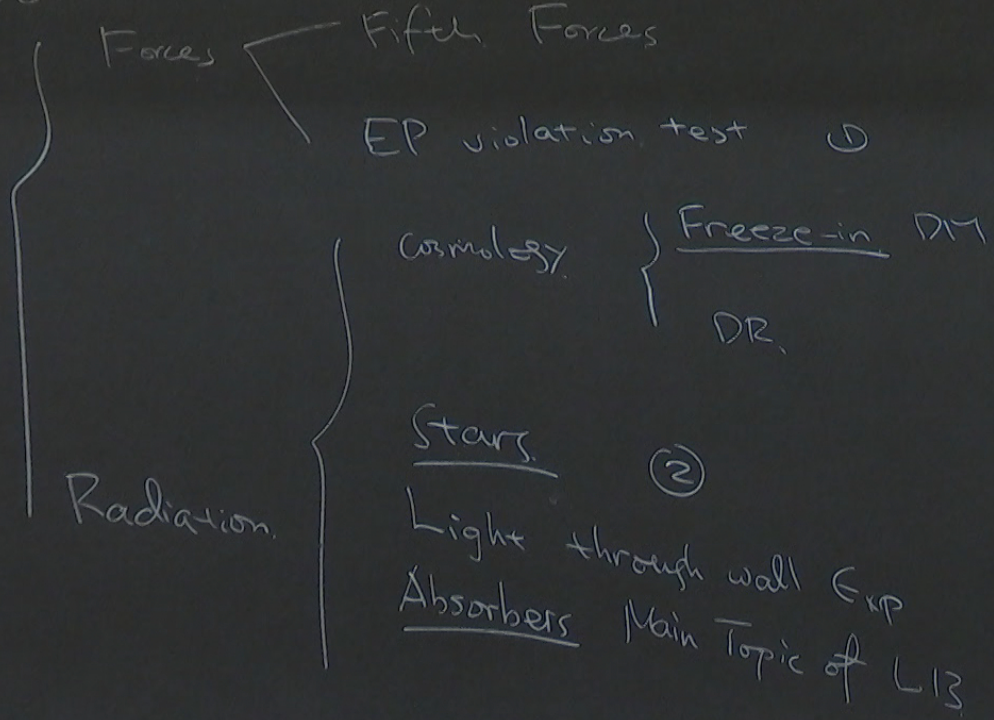 Forces Fifth Forces
EP violation test ①
Cosmology Freeze-in DM
DR
Stars ②
Radiation
Light through wall Exp
Absorbers Main Topic of L13